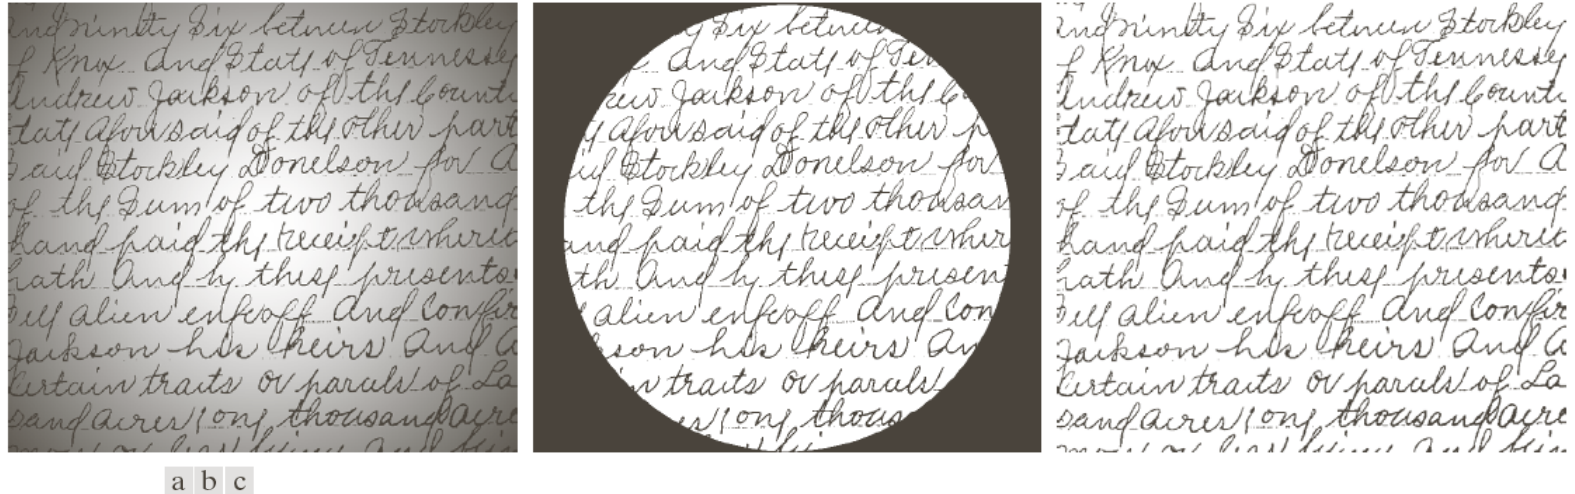 and ninety Six between Stockley
of Knox And State of Tennessey
Andrew Jackson of the Count
tate aforesaid of the other part
said Stockley Donelson for a
of the Sum of two thousand
hand paid the receipt where
hath And by these presents
sell alien enfeoff And Confir
Jackson his heirs And A
Certain tracts or parcels of La
sand acres one thousand acre
Six between
And State of Ten
rew Jackson of the Co
aforesaid of the other p
id Stockley Donelson for
the Sum of two thousan
and paid the receipt wher
th And by these presen
alien enfeoff And Con
son his heirs An
in tracts or parcels
es one thous
and ninety Six between Stockley
of Knox And State of Tennessey
Andrew Jackson of the Count
tate aforesaid of the other part
said Stockley Donelson for a
of the Sum of two thousand
hand paid the receipt where
hath And by these presents
sell alien enfeoff And Confir
Jackson his heirs And A
Certain tracts or parcels of La
sand acres one thousand acre
a b c